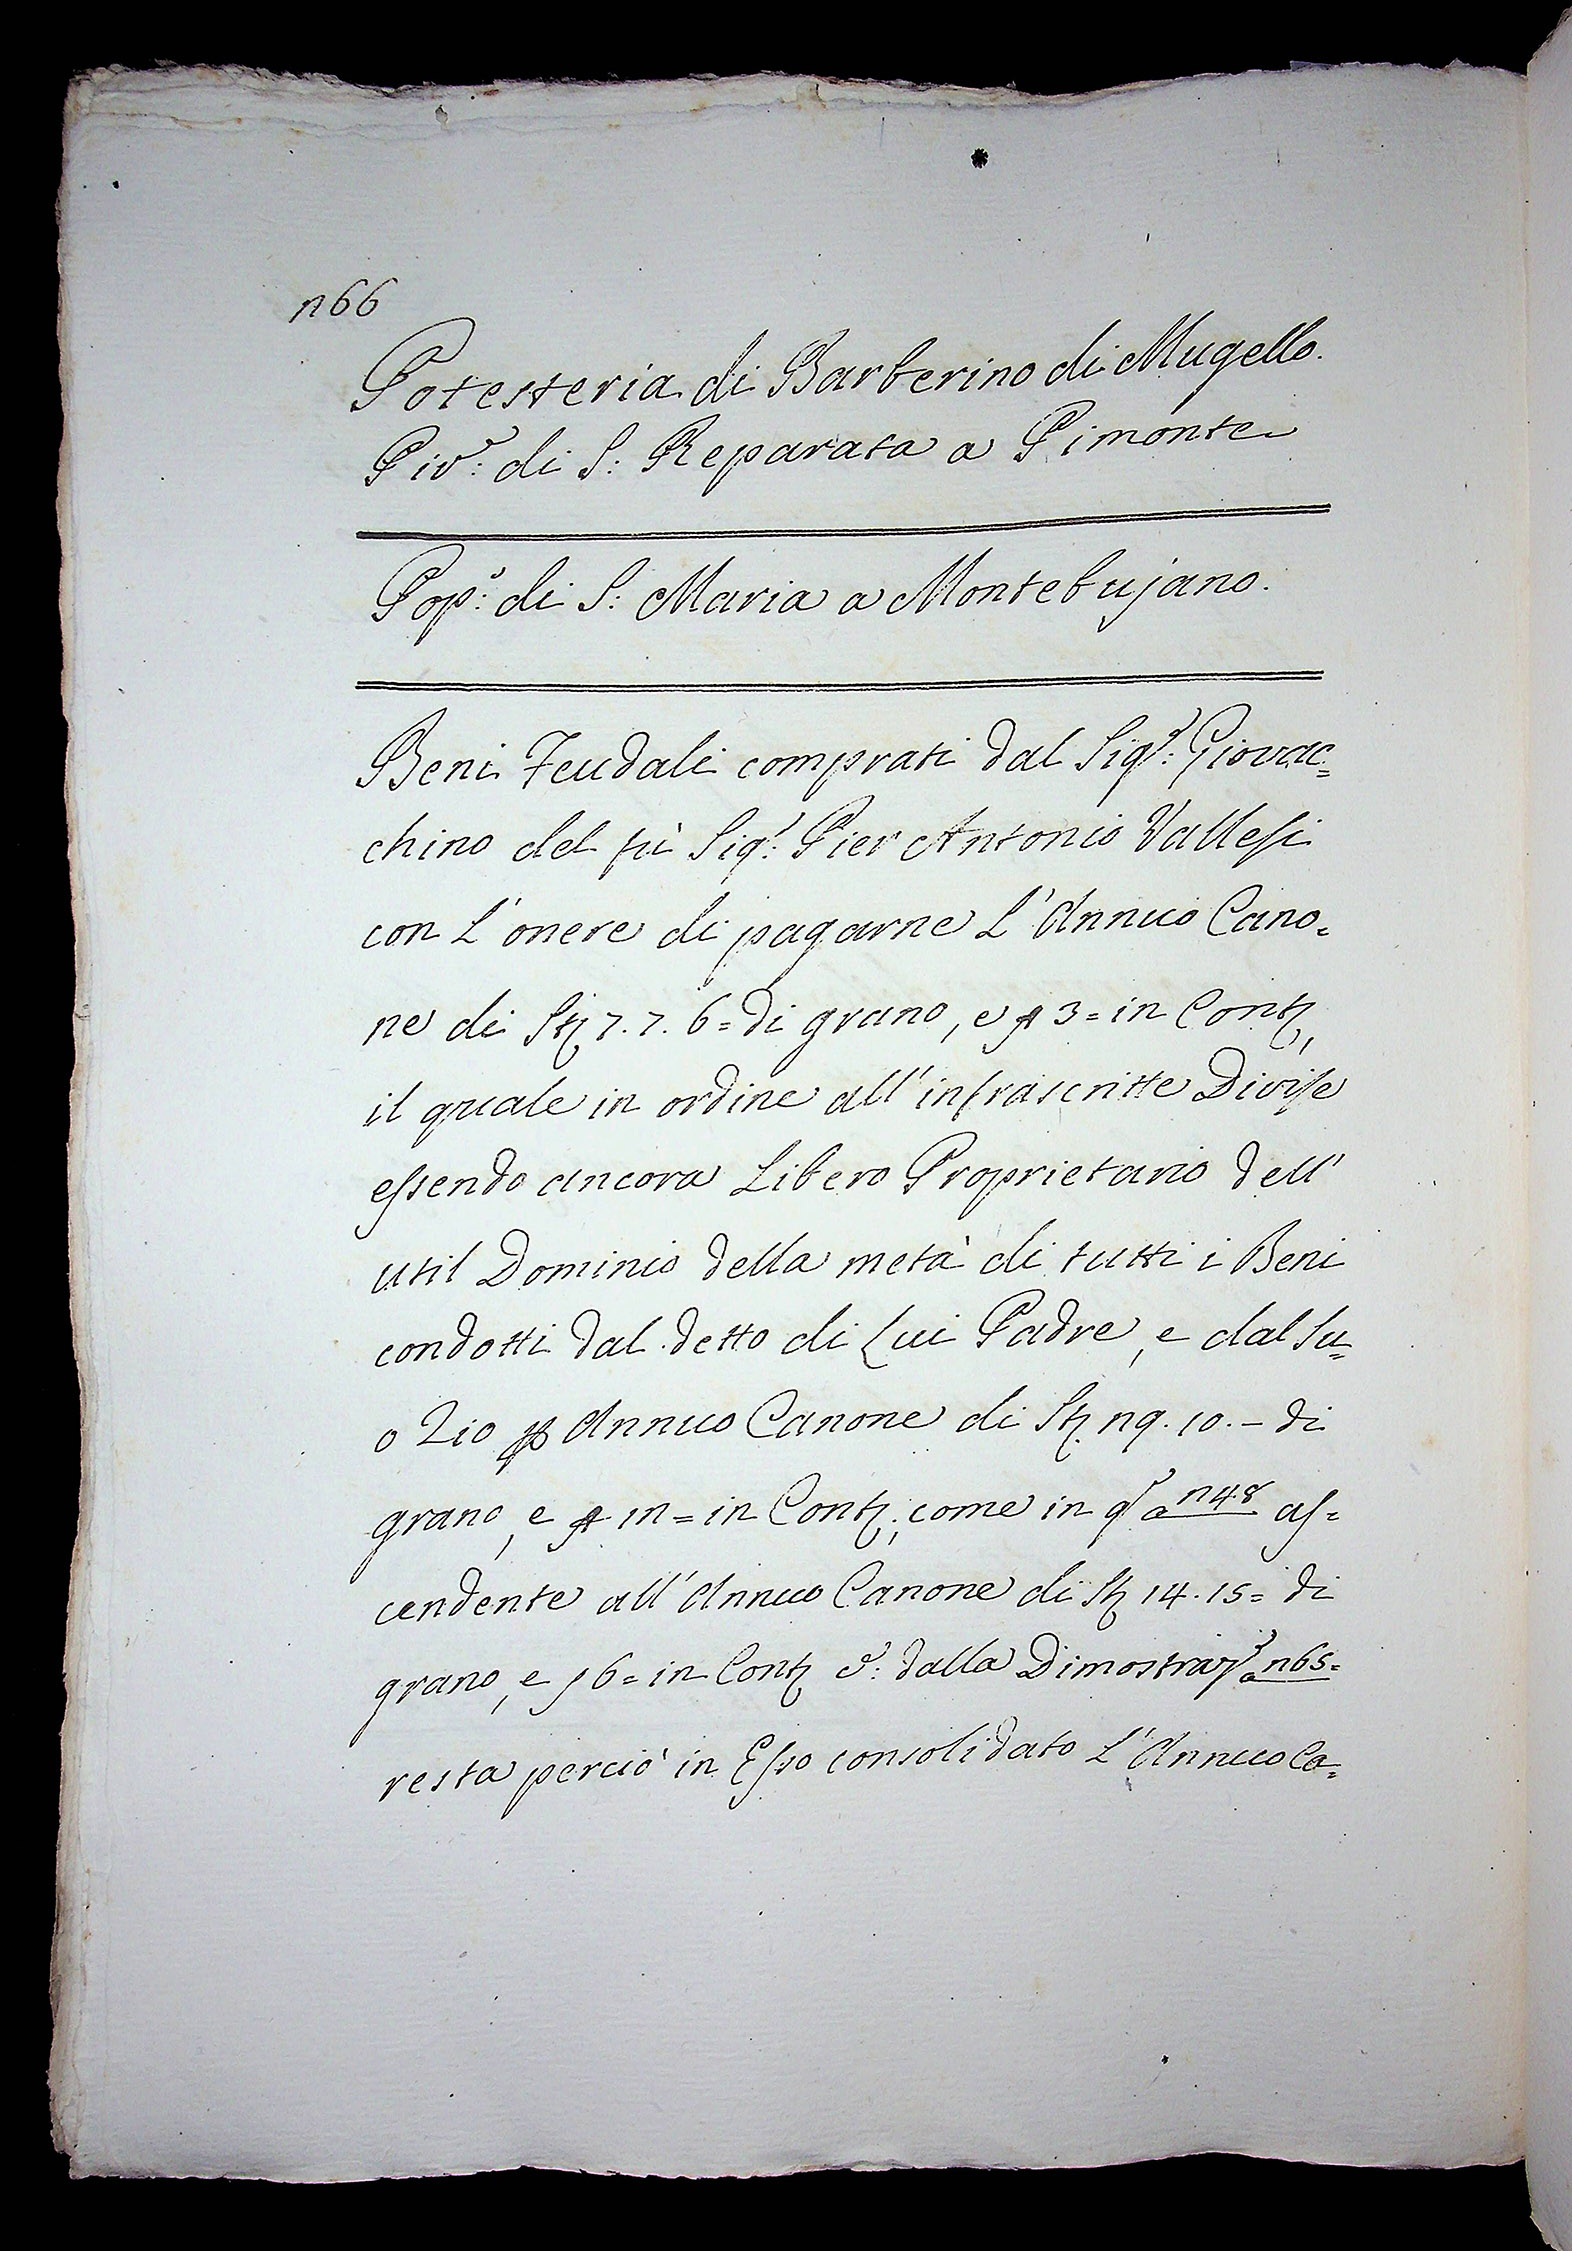 266
Potesteria di Barberino di Mugello.
Piv.e: di S: Reparata a Pimonte
Pop.o: di S: Maria a Montebujano.
Beni Feudali comprati dal Sig.r: Giovac=
chino del fù Sig.r: Pier Antonio Vallesi
con L'onere di pagarne L'Annuo Cano=
ne di St 7. 7. 6= di grano, e £ 3= in Cont,
il quale in ordine all'infrascritte Divise
essendo ancora Libero Proprietario dell'
util Dominio della metà di tutti i Beni
condotti dal detto di Lui Padre, e dal Su=
o Zio p Annuo Canone di St. 29. 10. - di
grano, e £ 12= in Cont., come in q.o a 248 as=
cendente all'Annuo Canone di St 14. 15= di
grano, e £ 6= in Cont dalla Dimostraz.e a 265=
resta perciò in Esso consolidato L'Annuo Ca=